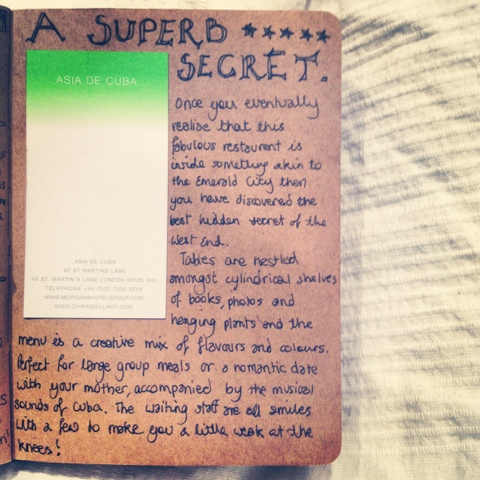 A SUPERB *****
SECRET.
ASIA DE CUBA
Once you eventually
realise that this
fabulous restaurant is
inside something akin to
the Emerald City then
you have discovered the
best hidden secret of the
West End.
Tables are nestled
amongst cylindrical shelves
of books, photos and
hanging plants and the
menu is a creative mix of flavours and colours.
Perfect for large group meals or a romantic date
with your mother, accompanied by the musical
sounds of Cuba. The waiting staff are all smiles
with a few to make you a little weak at the
knees!
ASIA DE CUBA
AT ST MARTINS LANE
45 ST. MARTIN'S LANE LONDON WC2N
TELEPHONE +44 (0)20 7300 5588
WWW.MORGANSHOTELGROUP.COM
WWW.CHINAGRILLMGT.COM